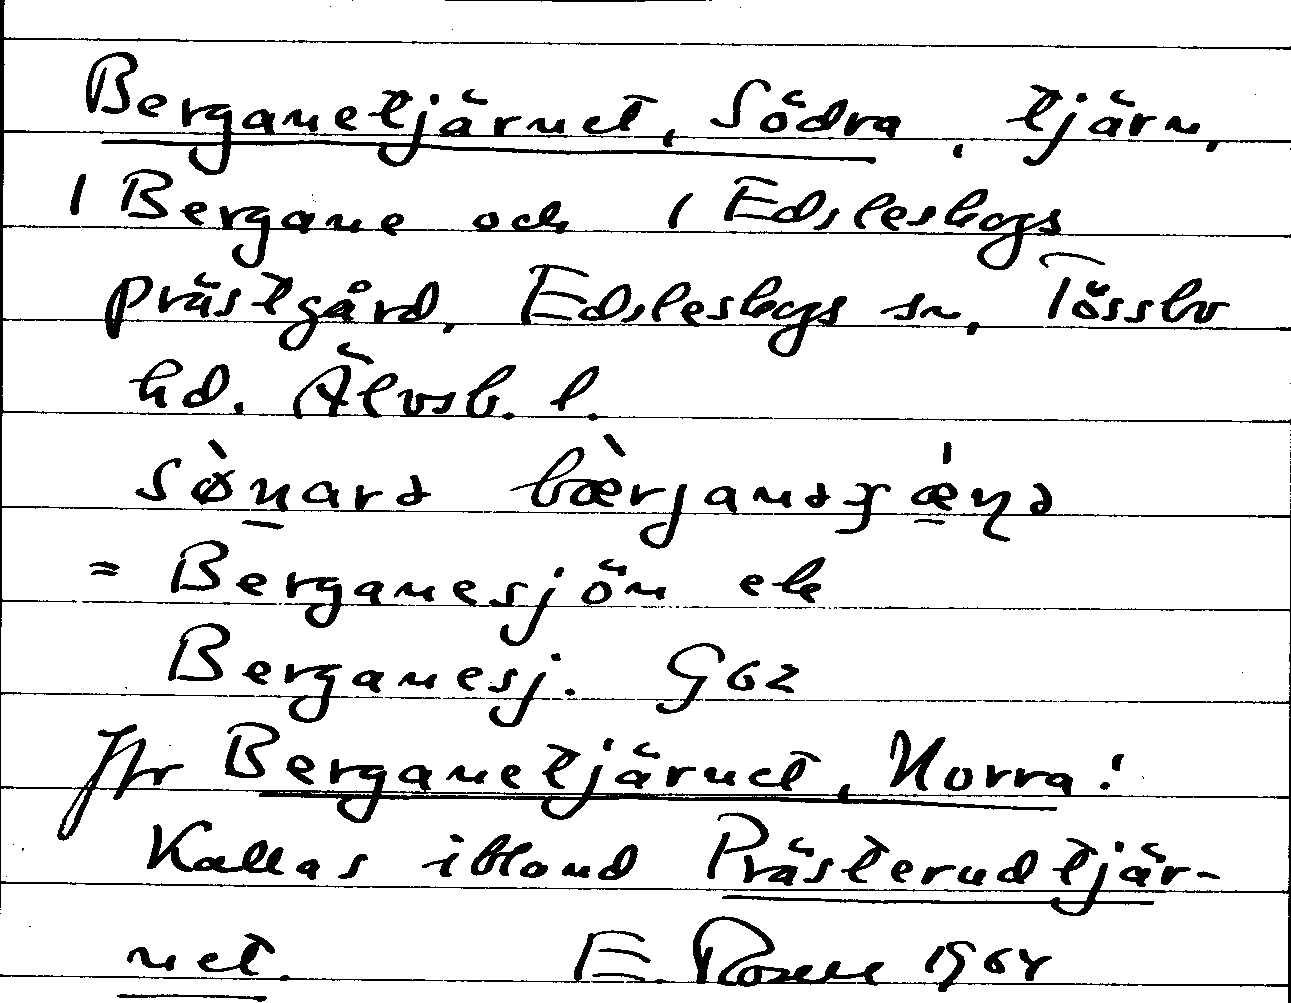 Berganetjärnet, Södra, tjärn,
1 Bergane och 1 Edsleskogs
prästgård, Edsleskogs sn, Tössbo
hd. Älvsb. l.
= Berganesjön ek
Berganesj. G62
Jfr Berganetjärnet, Norra!
Kallas ibland Prästerudtjär-
net. E. Rosell 1964